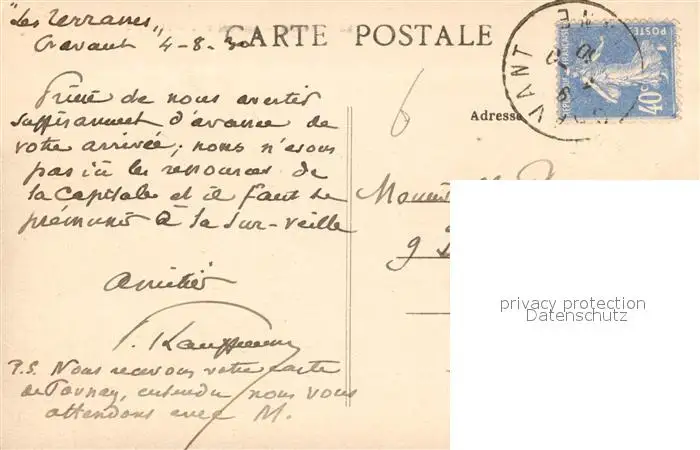 "Les Terrasses"
Cravant 4-8-30
CARTE POSTALE
Prière de nous avertir
suffisamment d'avance de
votre arrivée; nous n'avons
pas ici les ressources de
la Capitale et il faut se
prémunir à la sur-veille
Amitiés
P.S. Nous recevons votre carte
de Tournay, entendu nous vous
attendons avec M.
6
Adresse
9
REPUBLIQUE FRANÇAISE
POSTES
40c
privacy protection
Datenschutz